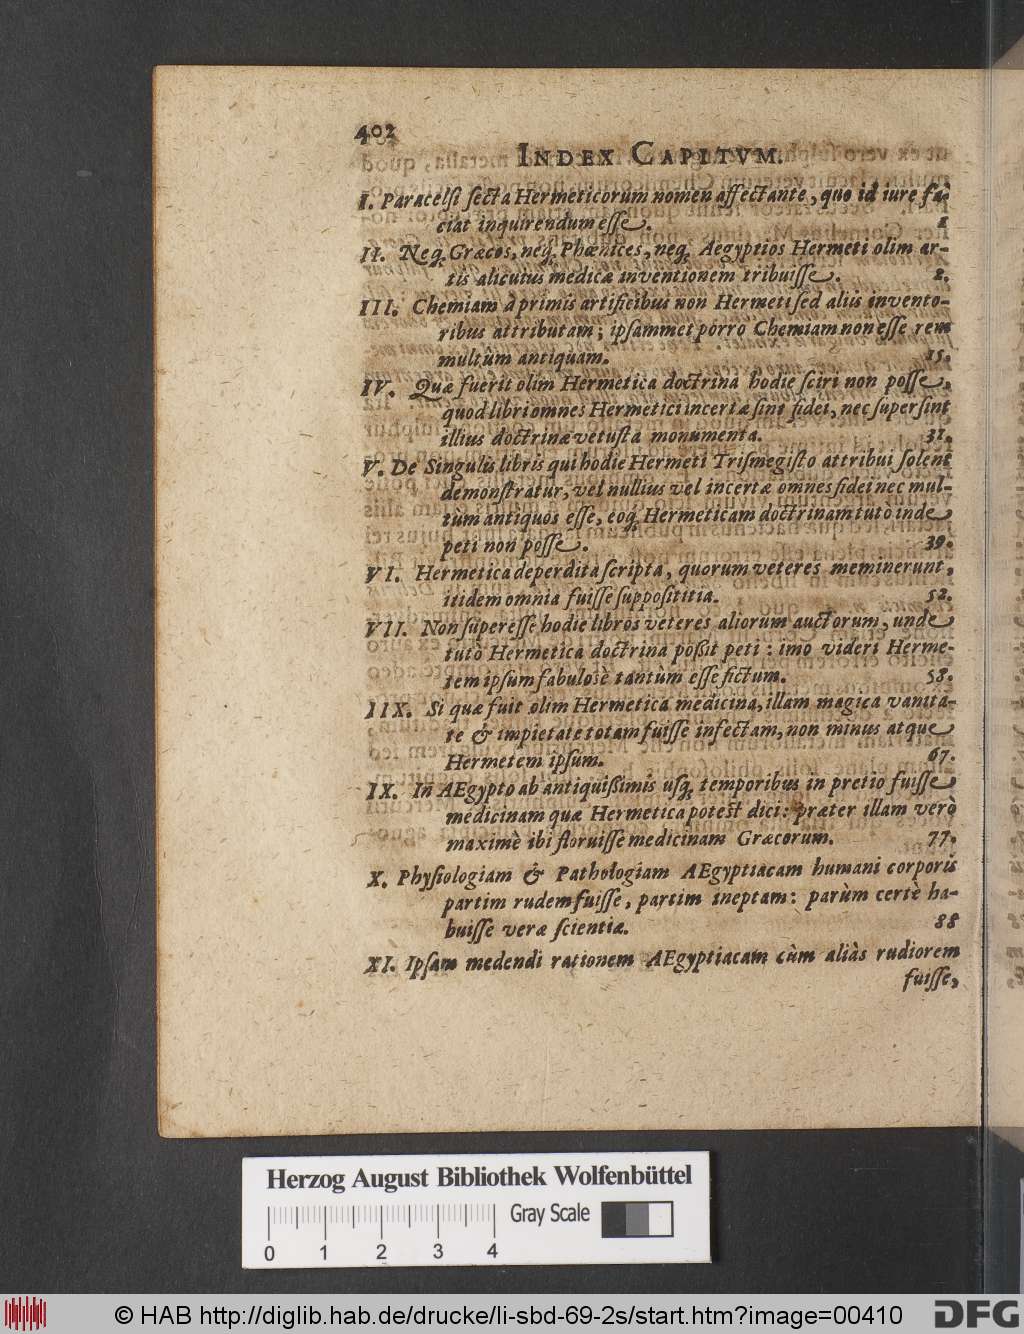 402
INDEX CAPITVM.
I. Paracelſi ſecta Hermeticorum nomen affectante, quo id iure fa-
ciat inquirendum eſſe. 1
II. Neq; Græcos, neq; Phœnices, neq; Aegyptios Hermeti olim ar-
tis alicuius medicæ inventionem tribuiſſe. 2.
III. Chemiam à primis artificibus non Hermeti ſed aliis invento-
ribus attributam; ipſammet porrò Chemiam non eſſe rem
multùm antiquam. 15.
IV. Quæ fuerit olim Hermetica doctrina hodie ſciri non poſſe,
quod libri omnes Hermetici incertæ ſint fidei, nec ſuperſint
illius doctrinæ vetuſta monumenta. 31.
V. De Singulis libris qui hodie Hermeti Triſmegiſto attribui ſolent
demonſtratur, vel nullius vel incertæ omnes fidei nec mul-
tùm antiquos eſſe, eoq; Hermeticam doctrinam tutò inde
peti non poſſe. 39.
VI. Hermetica deperdita ſcripta, quorum veteres meminerunt,
itidem omnia fuiſſe ſuppoſititia. 52.
VII. Non ſupereſſe hodie libros veteres aliorum auctorum, unde
tutò Hermetica doctrina poßit peti: imo videri Herme-
tem ipſum fabulosè tantùm eſſe fictum. 58.
IIX. Si quæ fuit olim Hermetica medicina, illam magica vanita-
te & impietate totam fuiſſe infectam, non minus atque
Hermetem ipſum. 67.
IX. In AEgypto ab antiquißimis uſq; temporibus in pretio fuiſſe
medicinam quæ Hermetica poteſt dici: præter illam verò
maximè ibi floruiſſe medicinam Græcorum. 77.
X. Phyſiologiam & Pathologiam AEgyptiacam humani corporis
partim rudem fuiſſe, partim ineptam: parùm certè ha-
buiſſe veræ ſcientiæ. 88
XI. Ipſam medendi rationem AEgyptiacam cùm aliàs rudiorem
fuiſſe,
Herzog August Bibliothek Wolfenbüttel
Gray Scale
0 1 2 3 4
© HAB http://diglib.hab.de/drucke/li-sbd-69-2s/start.htm?image=00410
DFG